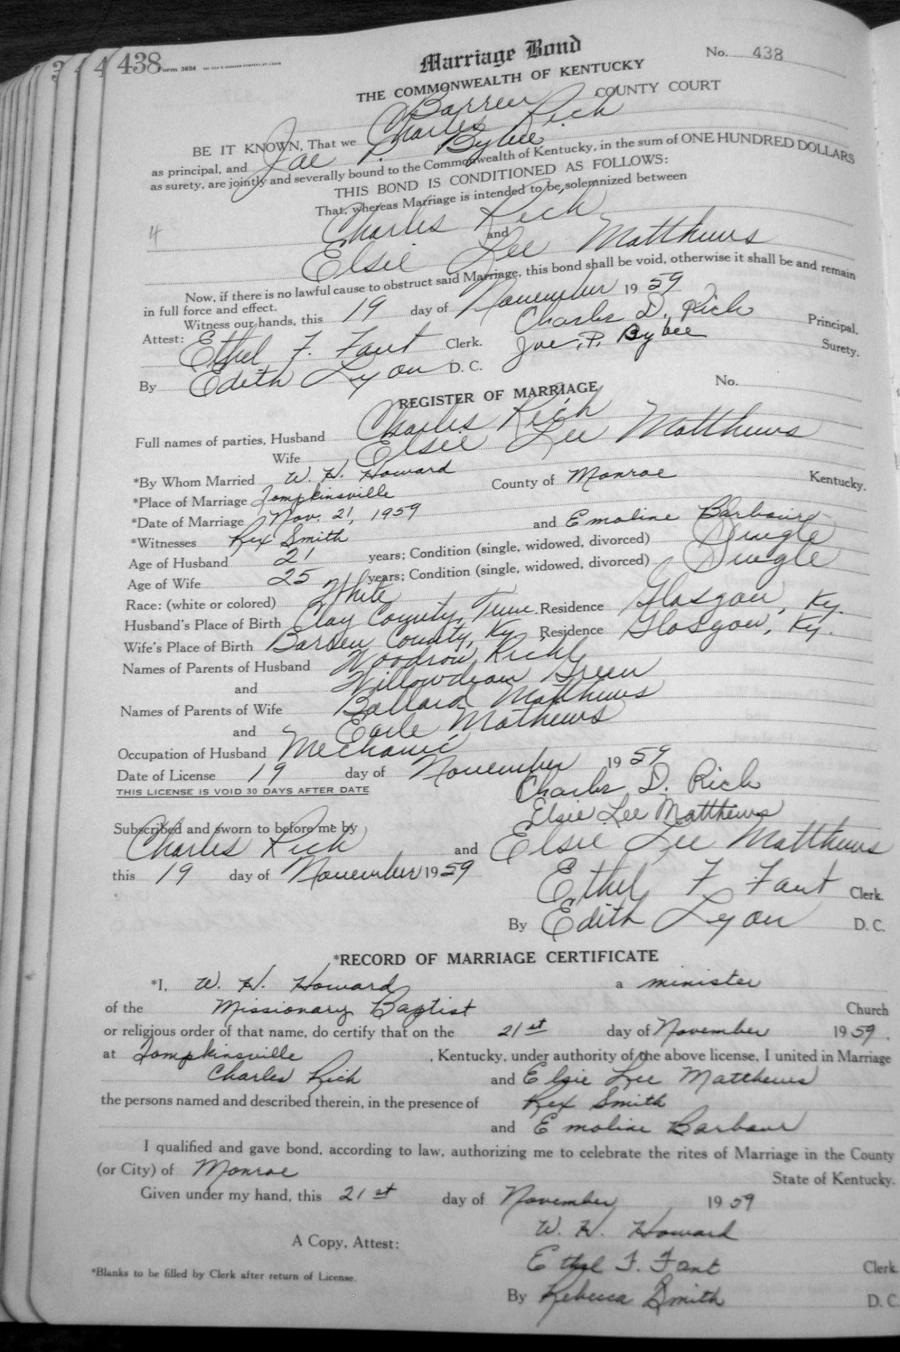 438
Marriage Bond
No. 438
THE COMMONWEALTH OF KENTUCKY
Barren COUNTY COURT
BE IT KNOWN, That we Charles Rich
as principal, and Joe P. Bybee
as surety, are jointly and severally bound to the Commonwealth of Kentucky, in the sum of ONE HUNDRED DOLLARS
THIS BOND IS CONDITIONED AS FOLLOWS:
That, whereas Marriage is intended to be solemnized between
Charles Rich
4
and
Elsie Lee Matthews
Now, if there is no lawful cause to obstruct said Marriage, this bond shall be void, otherwise it shall be and remain
in full force and effect.
Witness our hands, this 19 day of November 1959
Charles D. Rich Principal.
Attest: Ethel F. Fant Clerk. Joe P. Bybee Surety.
By Edith Lyon D. C.
REGISTER OF MARRIAGE No.
Full names of parties, Husband Charles Rich
Wife Elsie Lee Matthews
*By Whom Married W. H. Howard
*Place of Marriage Tompkinsville County of Monroe Kentucky.
*Date of Marriage Nov. 21, 1959
*Witnesses Rex Smith and Emoline Barbour
Age of Husband 21 years; Condition (single, widowed, divorced) Single
Age of Wife 25 years; Condition (single, widowed, divorced) Single
Race: (white or colored) White
Husband's Place of Birth Clay County, Tenn. Residence Glasgow, Ky.
Wife's Place of Birth Barren County, Ky Residence Glasgow, Ky.
Names of Parents of Husband Woodrow Rich
and Willowdean Green
Names of Parents of Wife Ballard Matthews
and Earle Mathews
Occupation of Husband Mechanic
Date of License 19 day of November 1959
THIS LICENSE IS VOID 30 DAYS AFTER DATE
Charles D. Rich
Elsie Lee Matthews
Subscribed and sworn to before me by
Charles Rich and Elsie Lee Matthews
this 19 day of November 1959
Ethel F. Fant Clerk.
By Edith Lyon D. C.
*RECORD OF MARRIAGE CERTIFICATE
*I, W. H. Howard a minister
of the Missionary Baptist Church
or religious order of that name, do certify that on the 21st day of November 1959.
at Tompkinsville, Kentucky, under authority of the above license, I united in Marriage
Charles Rich and Elsie Lee Matthews
the persons named and described therein, in the presence of Rex Smith
and Emoline Barbour
I qualified and gave bond, according to law, authorizing me to celebrate the rites of Marriage in the County
(or City) of Monroe State of Kentucky.
Given under my hand, this 21st day of November 1959
W. H. Howard
A Copy, Attest: Ethel F. Fant Clerk
*Blanks to be filled by Clerk after return of License.
By Rebecca Smith D. C.